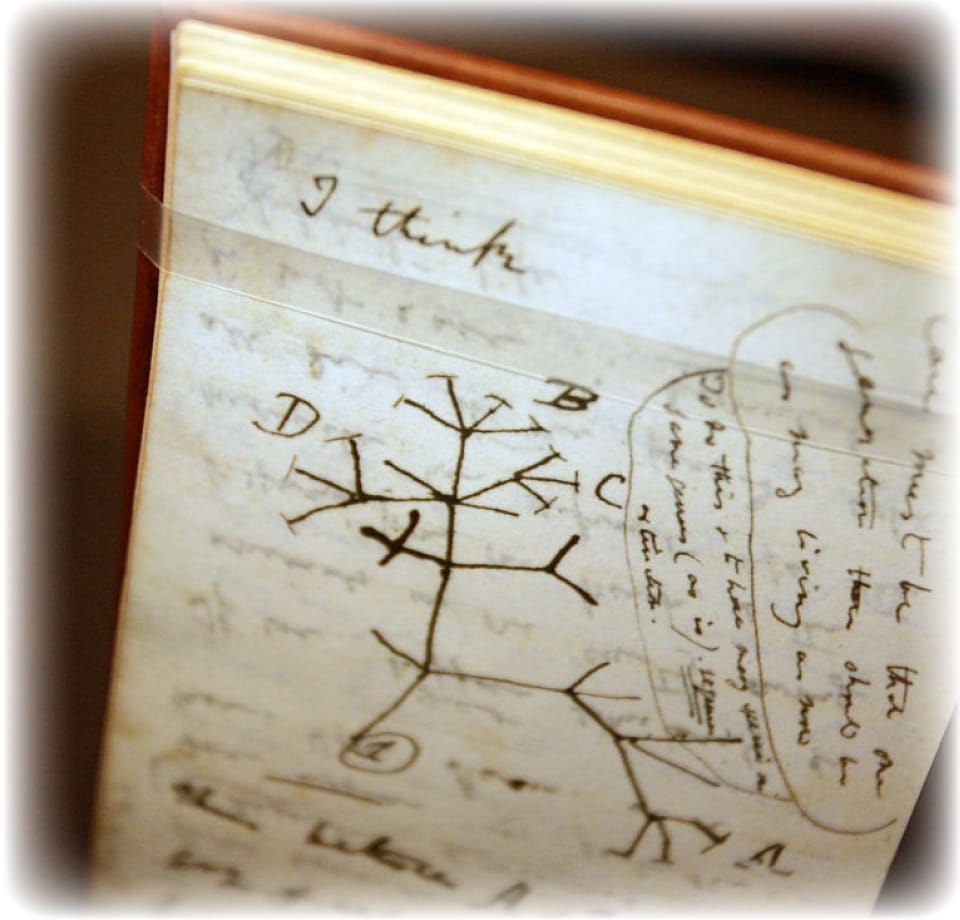 I think
Case must be that one
generation then should be
as many living as now
To do this & to have many species in
same genus (as is). requires
extinction.
B
D
C
1
A
Thus between A